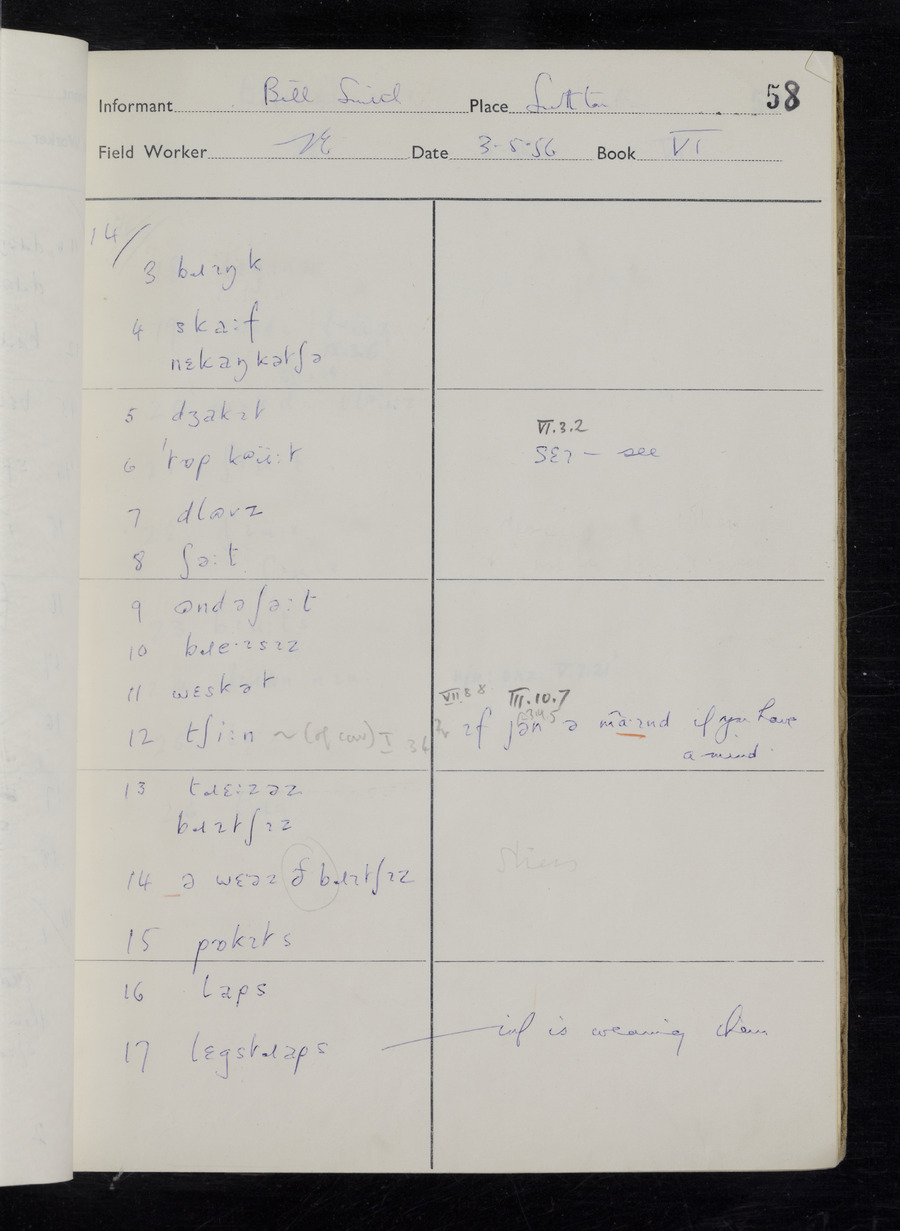 Informant Bill Place Sutton 58
Field Worker Date 3-5-56 Book VI
14/
3 bɹɪŋk
4 skaːf
nɛkaŋkətʃə
5 dʒakɪt
6
7 ɡlɒvz
8 ʃəːt
9 ɒndəʃəːt
10 bɹeˑɪsɪz
11 wɛskət
12 tʃiːn ~ (of cow) I
13 tɹɛːzəz
bɹɪtʃɪz
14 ə wɛəz ə̄ bɹɪtʃɪz
15 pɒkɪts
16 laps
17 lɛgstɹaps
VI.3.2
sɛɪ — see
VII 8 8 III.10.7
ɪf ə mɑ̄ːɪnd if you have
a mind
inf is wearing them